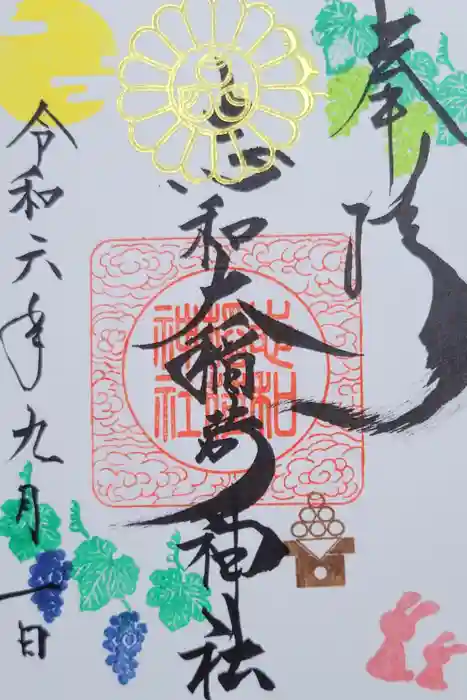 奉拝
和大稲荷神社
稲荷
神社
令和六年九月一日